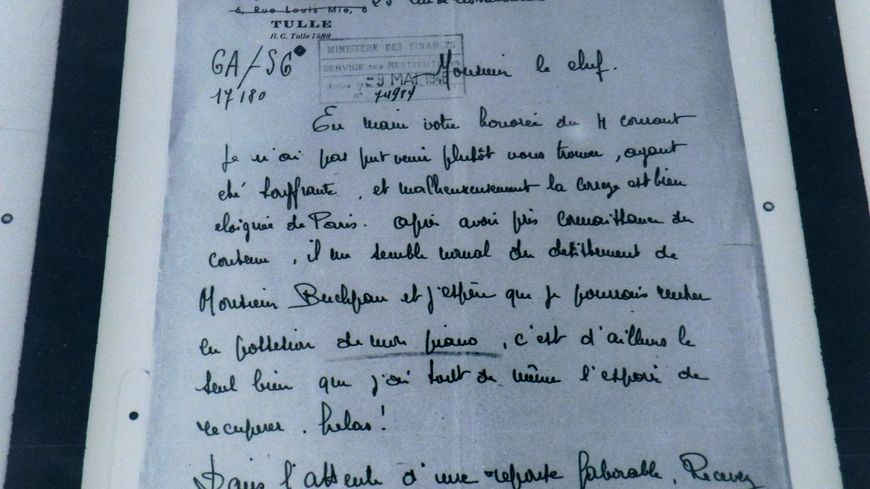 6, Rue Louis Mie, 6
TULLE
R. C. Tulle 7588
GA/SG
17180
MINISTÈRE DES FINANCES
SERVICE DES RESTITUTIONS
9 MAI 194
N° 74984
Monsieur le chef.
En main votre honorée du 4 courant
Je n'ai pas put venir plutôt vous trouver, ayant
été souffrante, et malheureusement la Correze est bien
eloignée de Paris. Après avoir pris connaissance du
contenu, il me semble normal du desistement de
Monsieur Buchpan et j'espère que je pourrais rentrer
en possession de mon piano, c'est d'ailleurs le
seul bien que j'ai tout de même l'espoir de
recuperer. helas!
Dans l'attente d'une reponse faborable, Recevez